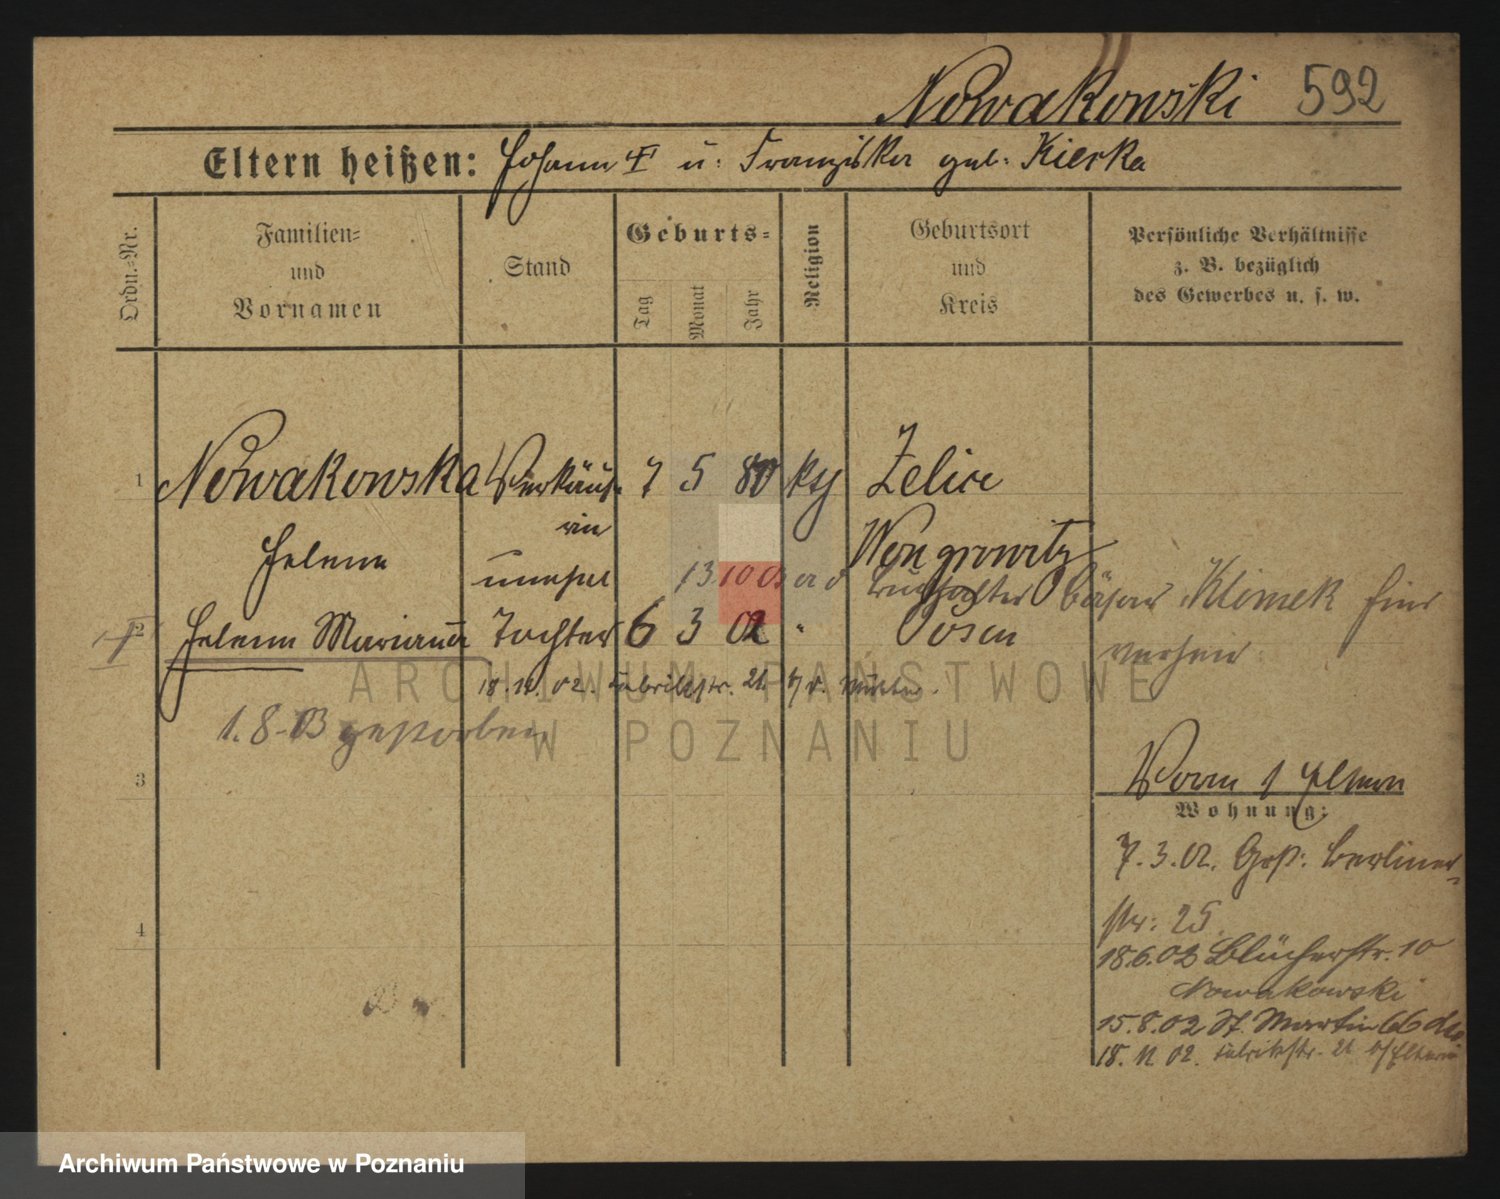 Nowakowski 592
Eltern heißen: Johann † u. Franziska geb. Kierka
Ordn.-Nr.
Familien- und Vornamen
Stand
Geburts-
Tag
Monat
Jahr
Religion
Geburtsort und Kreis
Persönliche Verhältnisse z. B. bezüglich des Gewerbes u. s. w.
1 Nowakowska Verkäuf- 7 5 80 kath Zelice
rin
Helena Wongrowitz
unehel 13 10 03 Buchhalter Klimek hier
verheir
2 Helena Marianna Tochter 6 3 02 " Posen
18.11.02. Fabrikstr. 21. Mutter.
1.8.03 gestorben
3
4
Wohnung:
7.3.02. Groß. Berliner-
str. 25
18.6.02 Blücherstr. 10
Nowakowski
15.8.02 St. Martin 66
18.11.02. Fabrikstr. 21
ARCHIWUM PAŃSTWOWE
W POZNANIU
Archiwum Państwowe w Poznaniu